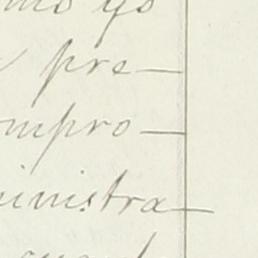 mo yo
pre—
mpro—
inistra—